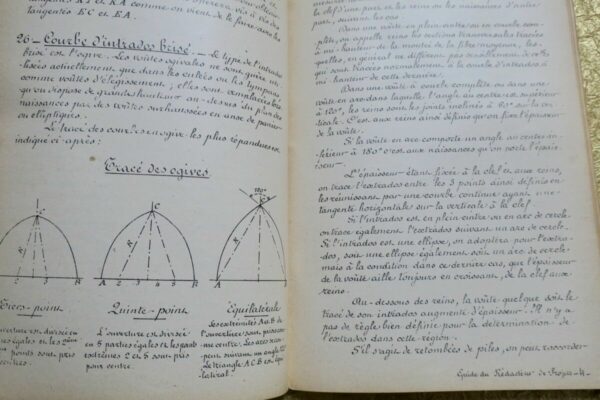 tangentes EC et EA comme on vient de faire avec les
tangentes EC et EA.
26 - Courbe d'intrados brisé. - Le type de l'intrados
brisé est l'ogive. Les voûtes ogivales ne sont guère uti-
lisées actuellement que dans les entrées ou les tympans
comme voûtes d'élégissement; elles sont remplacées lors
qu'on dispose de grandes hauteurs au-dessus du plan des
naissances par des voûtes surhaussées en anse de panier
ou elliptiques.
Le tracé des courbes en ogive les plus répandues est
indiqué ci-après:
Tracé des ogives
C
R
1 2 3 B
C
R
A 1 2 3 4 5 B
120°
C
R
A
Tiers-point
ouverture est divisée en
égales et les
points sont pris
centre.
Quinte-point
L'ouverture est divisée
en 5 parties égales et les points
extrêmes 2 et 5 sont pris
pour centre.
Équilatérale
Les extrémités A et B de
l'ouverture sont prises com-
me centre. Les arcs
suivant un angle
Le triangle ACB est équi-
latéral.
la clef d'une part, et les reins ou les naissances d'autre
part, suivant les cas.
Dans une voûte en plein cintre ou en courbe com-
plète, on appelle reins les sections transversales tracées
à mi-hauteur de la montée de la fibre moyenne, les-
quelles, en général ne diffèrent pas sensiblement de celles
qui sont tracées normalement à la courbe d'intrados à
mi-hauteur de cette dernière.
Dans une voûte à courbe complète ou dans une
voûte en arc dans laquelle l'angle au centre est supérieur
à 120°, les reins sont les joints inclinés à 60° sur la ver-
ticale. C'est aux reins ainsi définis qu'on fixe l'épaisseur
de la voûte.
Si la voûte en arc comporte un angle au centre in-
férieur à 120° c'est aux naissances qu'on porte l'épais-
seur.
L'épaisseur étant fixée à la clef et aux reins,
on trace l'extrados entre les 3 points ainsi définis en
les réunissant par une courbe continue ayant une
tangente horizontale sur la verticale à la clef.
Si l'intrados est en plein cintre ou en arc de cercle
on trace également l'extrados suivant un arc de cercle.
Si l'intrados est une ellipse, on adoptera pour l'extra-
dos, soit une ellipse également soit un arc de cercle
mais à la condition dans ce dernier cas, que l'épaisseur
de la voûte aille toujours en croissant, de la clef aux
reins.
Au-dessous des reins, la voûte quelque soit le
tracé de son intrados augmente d'épaisseur. Il n'y a
pas de règle bien définie pour la détermination de
l'extrados dans cette région.
S'il s'agit de retombées de piles, on peut raccorder
Guide du Rédacteur de Projets - 4 -